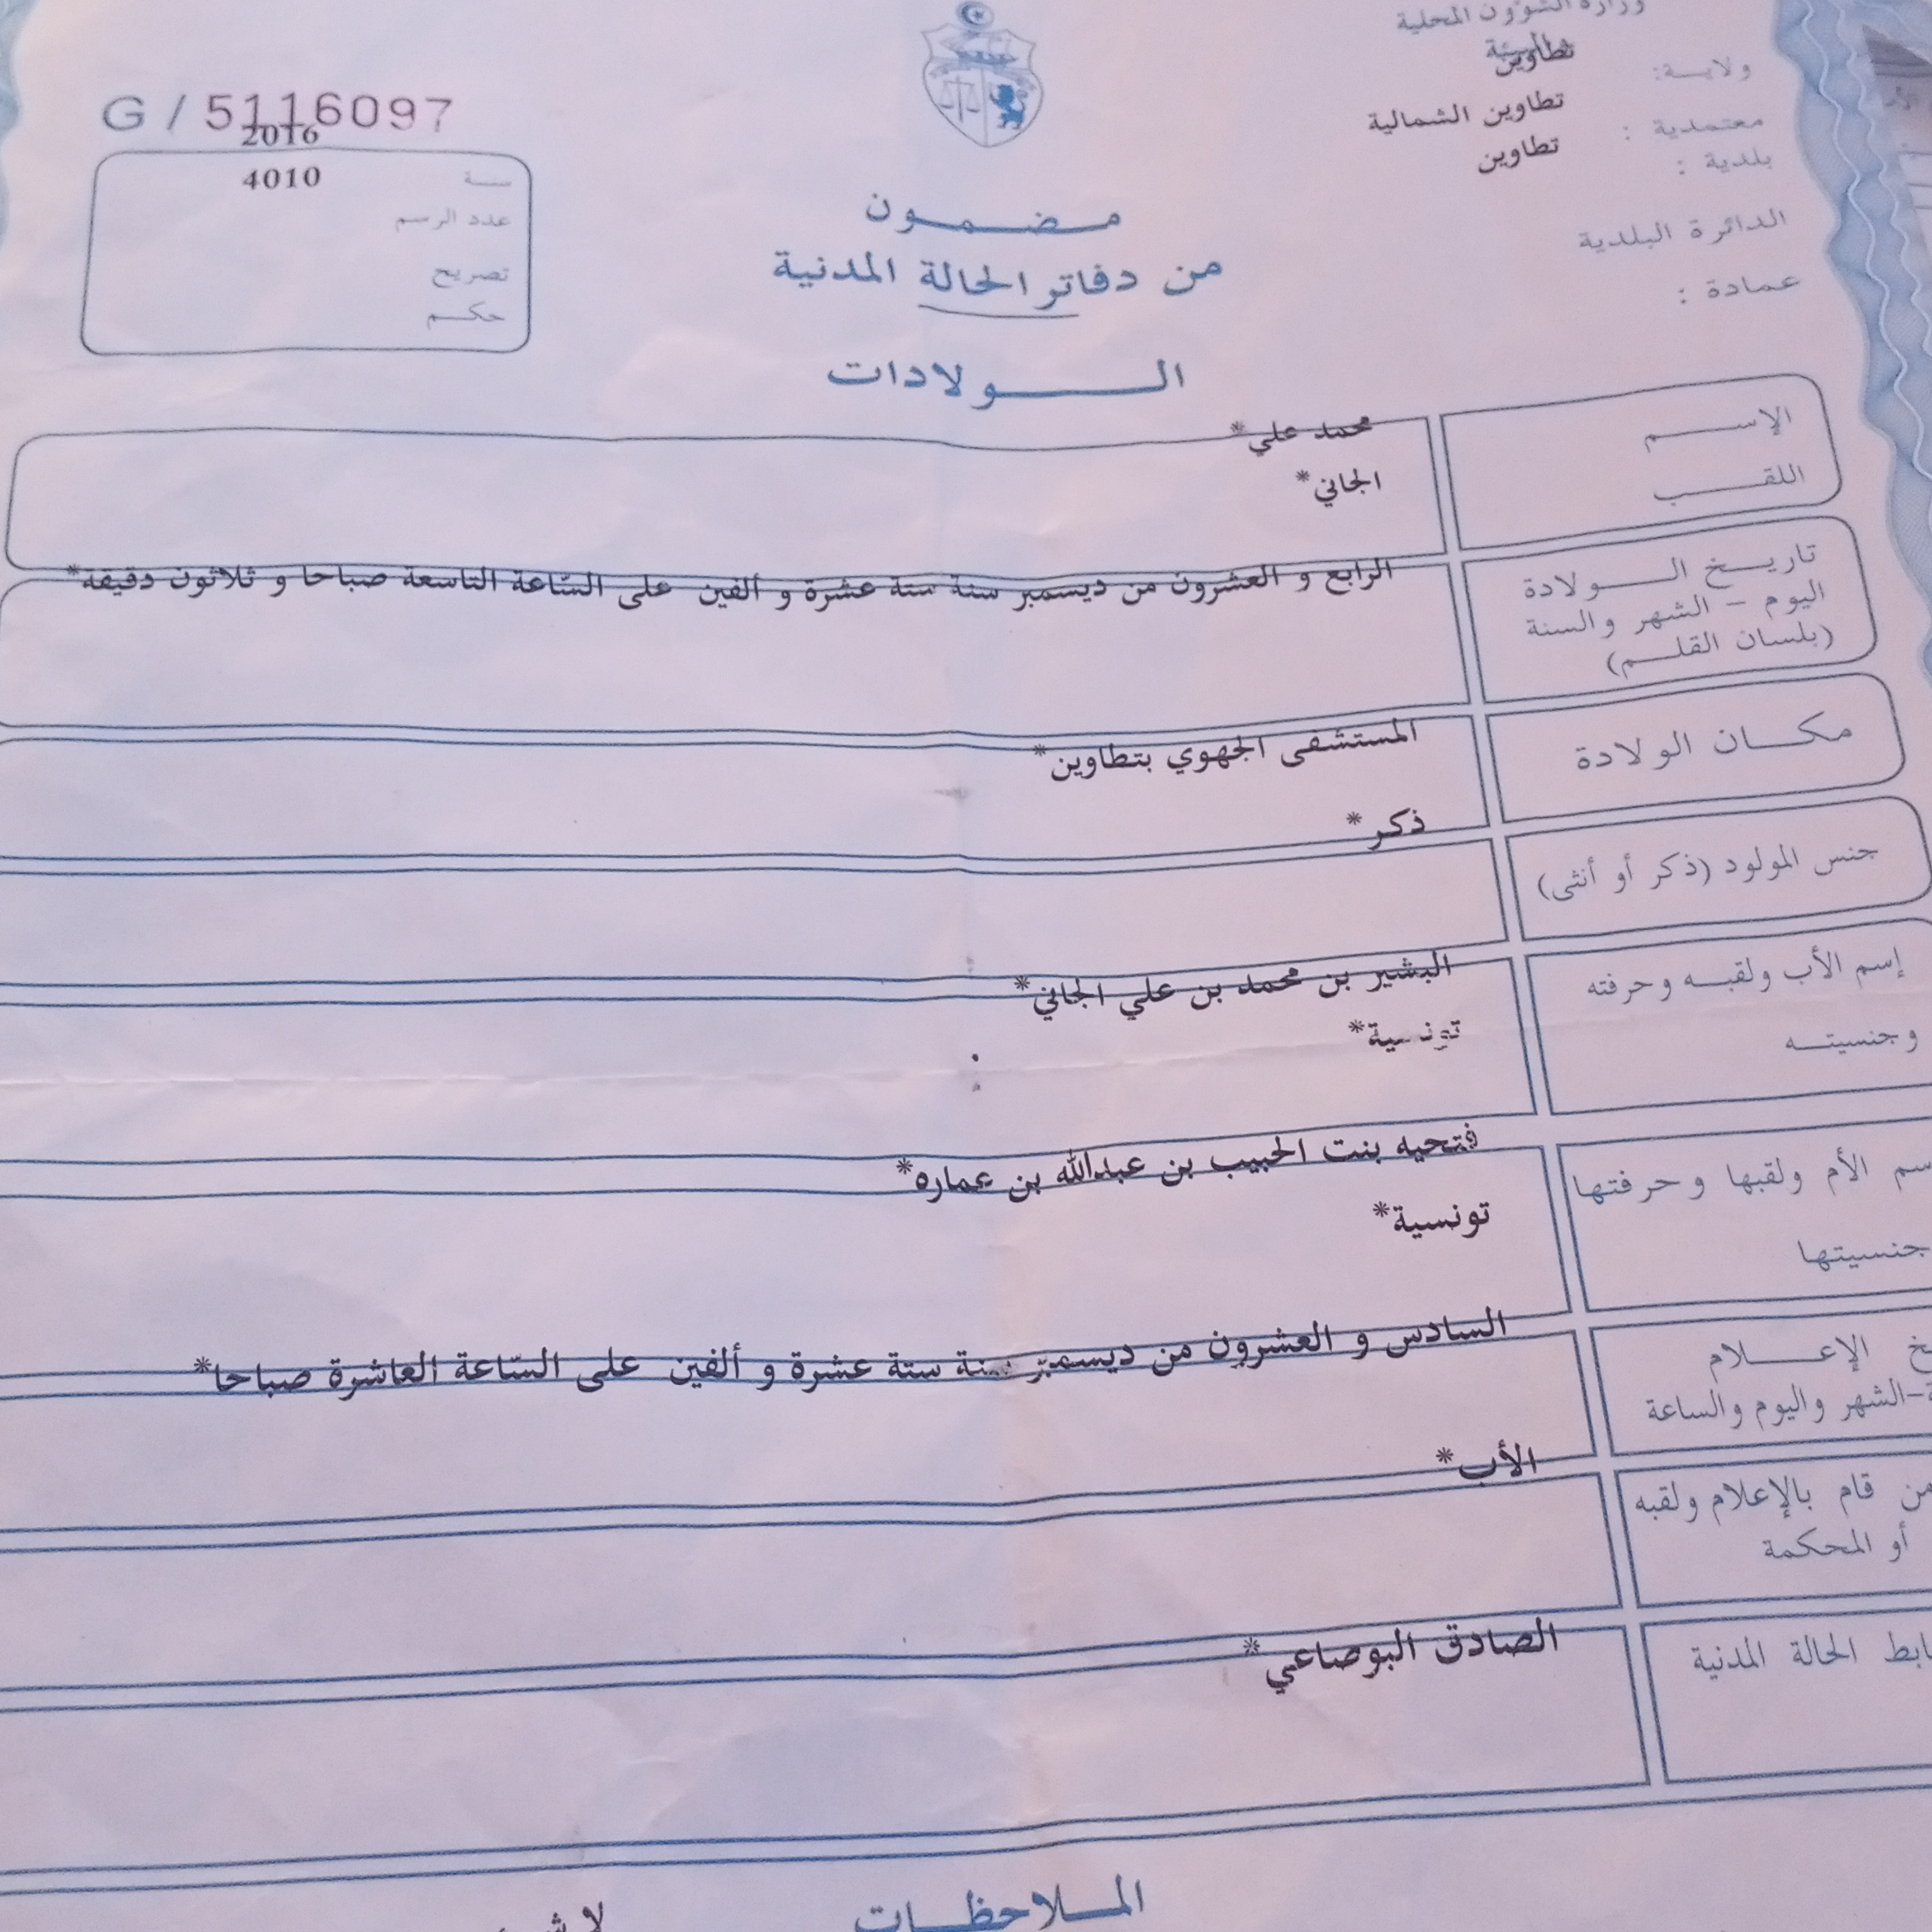 وزارة الشؤون المحلية
ولاية: تطاوين
معتمدية : تطاوين الشمالية
بلدية : تطاوين
الدائرة البلدية
عمادة :
G / 5116097
2016
سنة 4010
عدد الرسم
تصريح
حكم
مضمون
من دفاتر الحالة المدنية
الولادات
الإسم محمد علي*
اللقب الجاني*
تاريخ الولادة الرابع و العشرون من ديسمبر سنة ستة عشرة و ألفين على الساعة التاسعة صباحا و ثلاثون دقيقة*
اليوم - الشهر والسنة
(بلسان القلم)
مكان الولادة المستشفى الجهوي بتطاوين*
جنس المولود (ذكر أو أنثى) ذكر*
إسم الأب ولقبه وحرفته البشير بن محمد بن علي الجاني*
وجنسيته تونسية*
سم الأم ولقبها وحرفتها فتحيه بنت الحبيب بن عبدالله بن عماره*
جنسيتها تونسية*
خ الإعلام السادس و العشرون من ديسمبر سنة ستة عشرة و ألفين على الساعة العاشرة صباحا*
ة-الشهر واليوم والساعة
من قام بالإعلام ولقبه الأب*
أو المحكمة
ابط الحالة المدنية الصادق البوصاعي*
الملاحظات